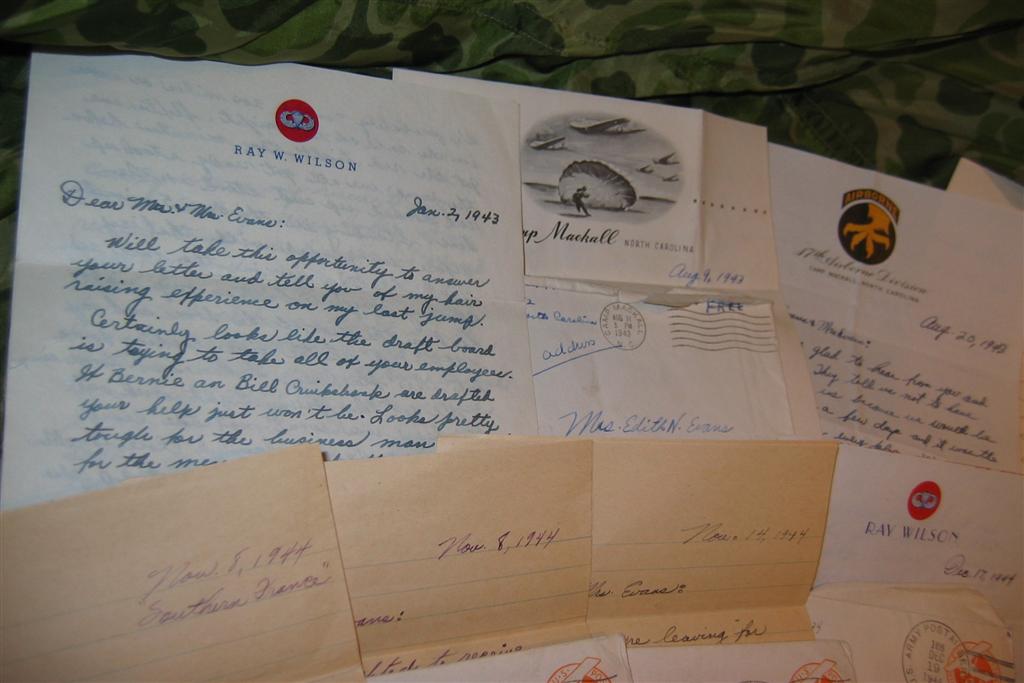 RAY W. WILSON
Jan. 2, 1943
Dear Mr. & Mrs. Evans:
Will take this opportunity to answer
your letter and tell you of my hair
raising experience on my last jump.
Certainly looks like the draft board
is trying to take all of your employees.
If Bernie an Bill Cruikshank are drafted
your help just won't be. Looks pretty
tough for the business man
for the
Mackall NORTH CAROLINA
Aug 9, 1943
Carolina
address
CAMP MACKALL
AUG 11
1943
N.C.
FREE
Mrs. Edith N. Evans
AIRBORNE
17th Airborne Division
CAMP MACKALL, NORTH CAROLINA
Aug. 20, 1943
glad to hear from you and
They tell us not to
is because we would be
a few days and it was the
Nov. 8, 1944
"Southern France"
Nov. 8, 1944
Nov. 14, 1944
Mrs. Evans:
leaving for
RAY WILSON
Dec. 17, 1944
U.S. ARMY POSTAL
DEC
19